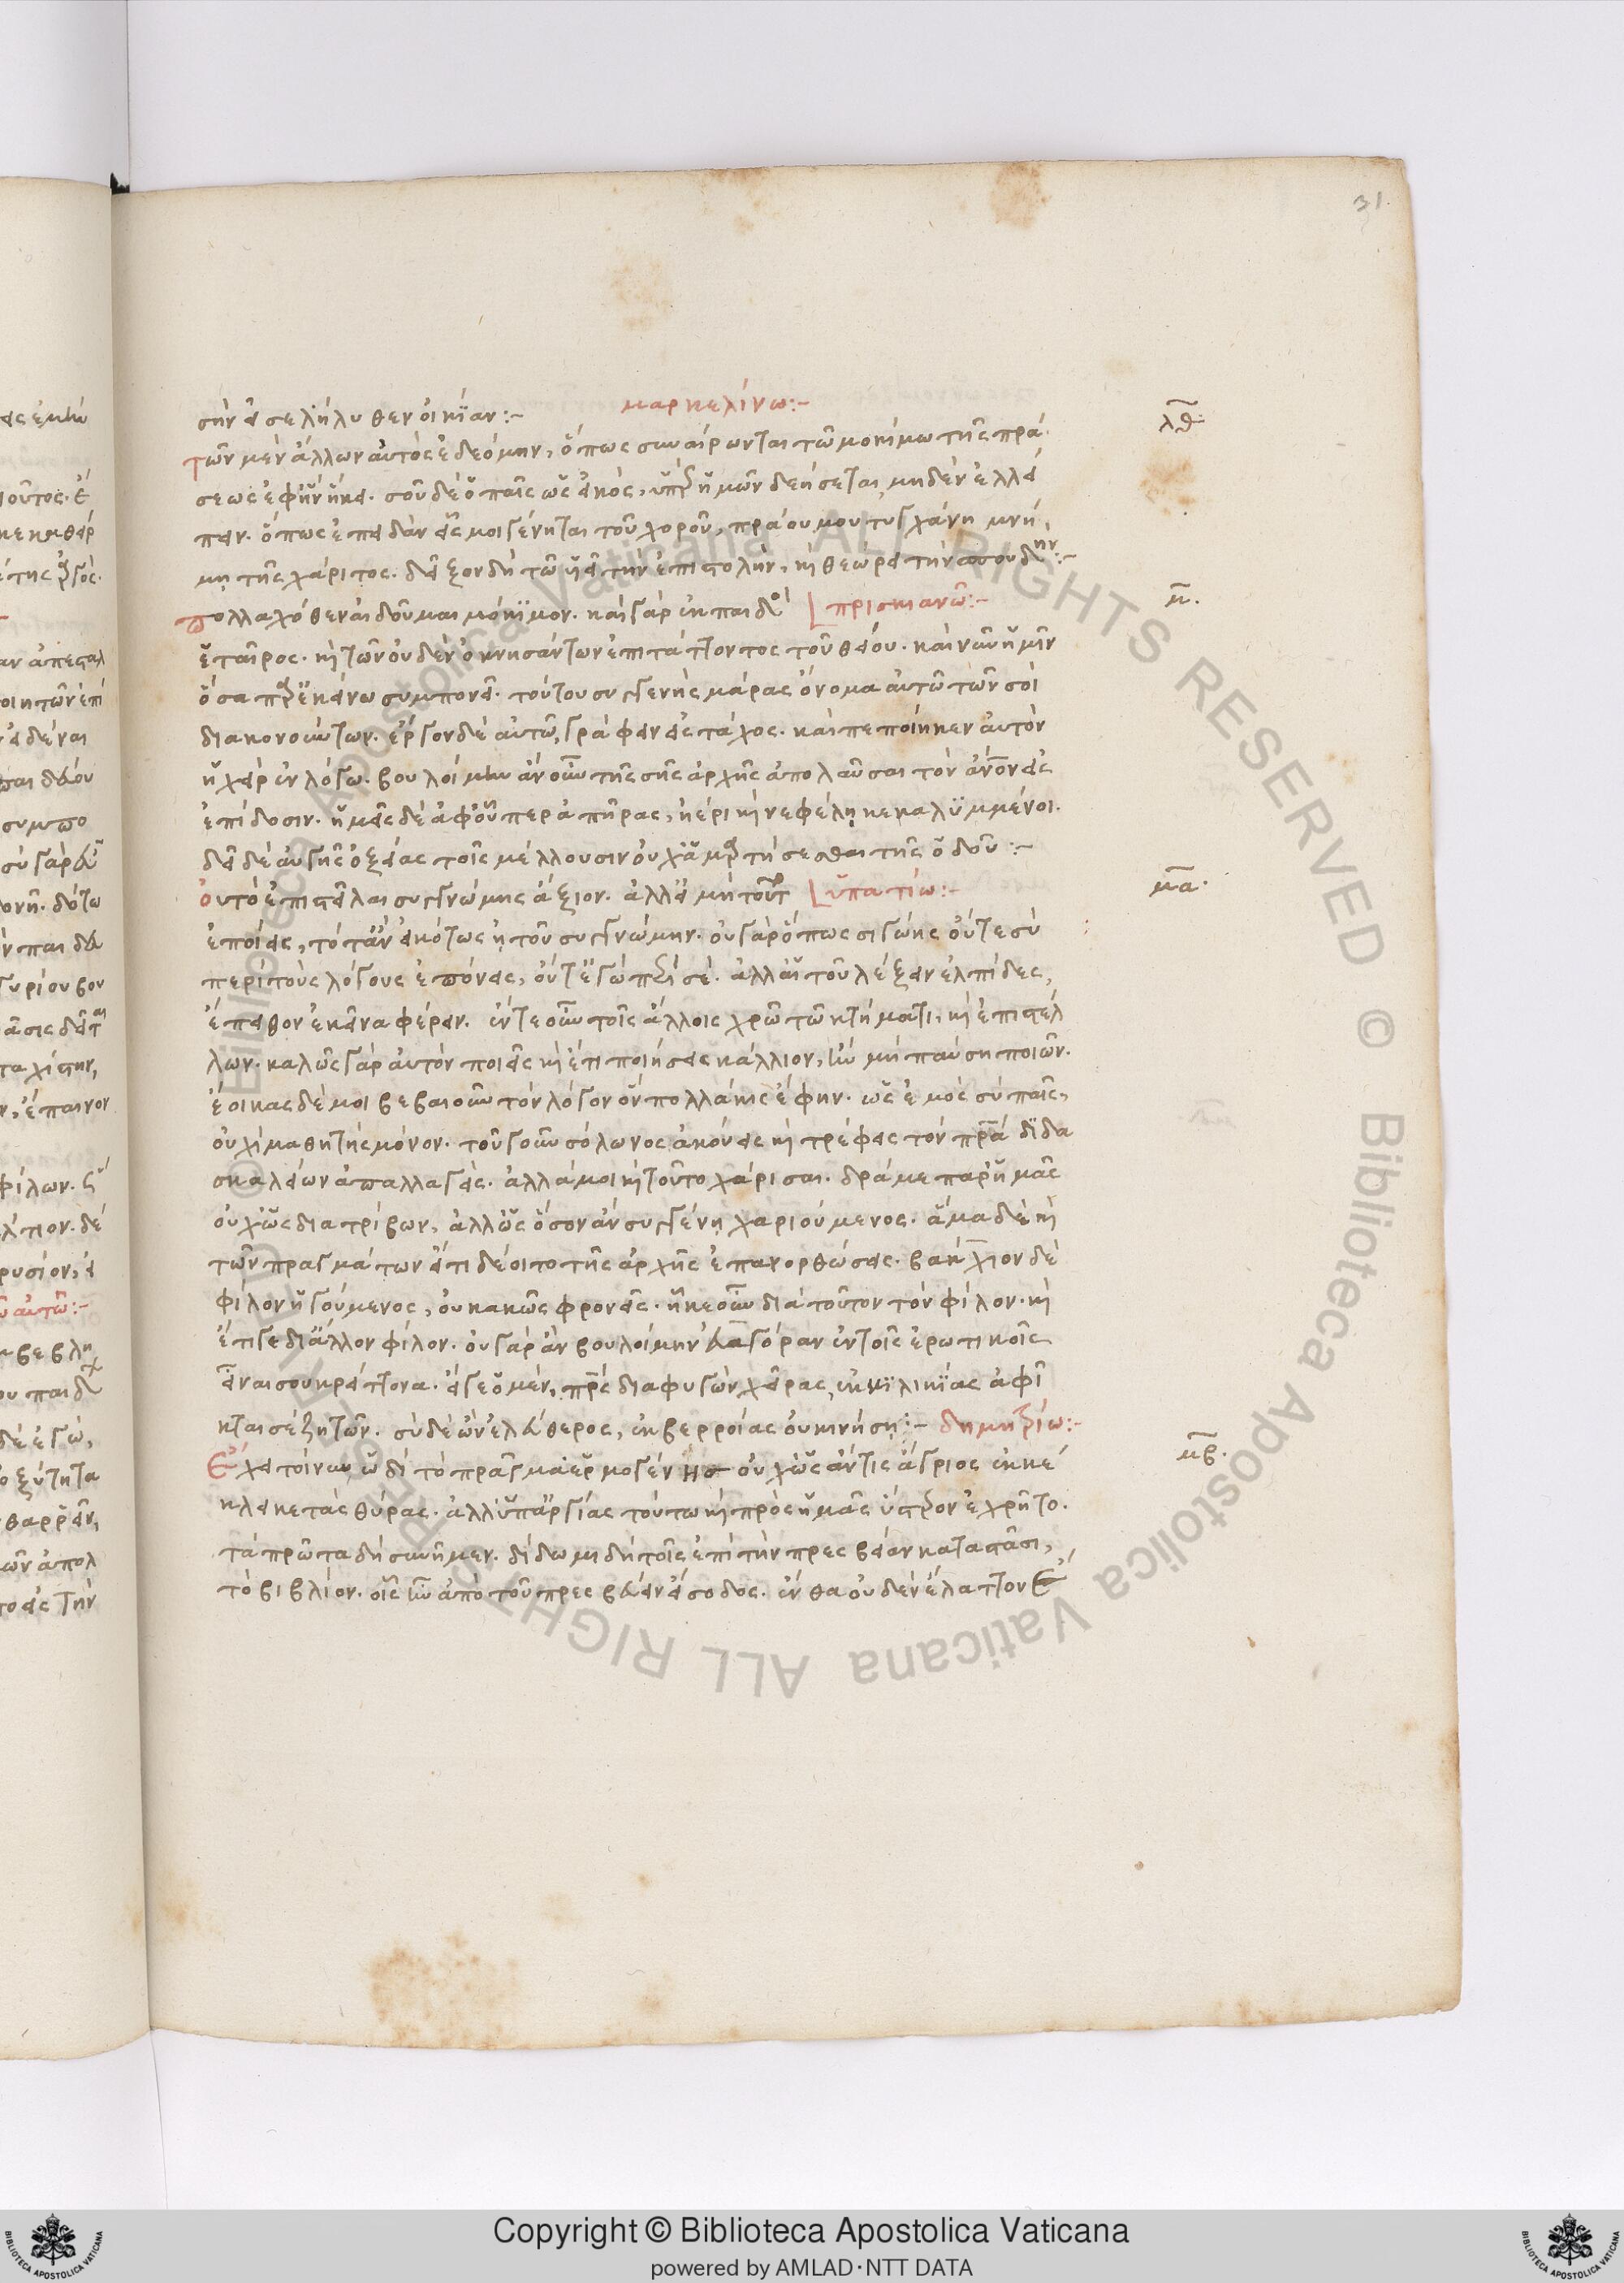 31.
σὴν εἰσελήλυθεν οἰκίαν :-
μαρκελίνω :-
λθ
τῶν μὲν ἄλλων αὐτὸς ἐδεόμην, ὅπως συναίρωνται τῶ μοκίμω τῆς πρά
σεως ἐφ' ἣν ἥκει. σοῦ δὲ ὁ παῖς ὡς εἰκὸς, ὑπὲρ ἡμῶν δεήσεται μηδὲν ἐλλεί
πειν. ὅπως ἐπειδὰν εἷς μοι γένηται τοῦ χοροῦ, πράου μου τυγχάνη μνή
μη τῆς χάριτος. δεῖξον δὴ τῶ ὑεῖ τὴν ἐπιστολὴν, καὶ θεώρει τὴν σπουδήν :-
πολλαχόθεν αἰδοῦμαι μόκιμον. καὶ γὰρ ἐκ παιδὸς
πρισκιανῶ :-
μ.
ἑταῖρος. καὶ τῶν οὐδὲν ὀκνησάντων ἐπιτάττοντος τοῦ θείου. καὶ νῦν ἡμῖν
ὅσα παρ' ἐκείνω συμπονεῖ. τούτου συγγενὴς μάρας ὄνομα αὐτῶ τῶν σοὶ
διακονούντων. ἔργον δὲ αὐτῶ, γράφειν εἰς τάχος. καὶ πεποίηκεν αὐτὸν
ἡ χεὶρ ἐν λόγω. βουλοίμην ἂν οὖν τῆς σῆς ἀρχῆς ἀπολαῦσαι τὸν ἄνθρωπον εἰς
ἐπίδοσιν. ἡμεῖς δὲ ἀφ' οὗπερ ἀπῆρας, ἠέρι καὶ νεφέλη κεκαλυμμένοι.
δεῖ δὲ αὐγῆς ὀξείας τοῖς μέλλουσιν οὐχ ἁμαρτήσεσθαι τῆς ὁδοῦ :-
οὐ τὸ ἐπιστεῖλαι συγγνώμης ἄξιον. ἀλλ' εἰ μὴ τοῦτο
ὑπατίω :-
μα.
ἐποίεις, τότ' ἂν εἰκότως ἤτου συγγνώμην. οὐ γὰρ ὅπως σιγώης οὔτε σὺ
περὶ τοὺς λόγους ἐπόνεις, οὔτ' ἐγὼ περὶ σέ. ἀλλ' αἱ τοῦ λέξειν ἐλπίδες,
ἔπειθον ἐκεῖνα φέρειν. ἔν τε οὖν τοῖς ἄλλοις χρῶ τῶ κτήματι, καὶ ἐπιστέλ
λων. καλῶς γὰρ αὐτὸν ποιεῖς καὶ ἔτι ποιήσεις κάλλιον, ἢν μὴ παύση ποιῶν.
ἔοικας δέ μοι βεβαιοῦν τὸν λόγον ὃν πολλάκις ἔφην. ὡς ἐμὸς σὺ παῖς,
οὐχὶ μαθητὴς μόνον. τοῦ γοῦν σόλωνος ἀκούεις καὶ τρέφεις τὸν πατέρα διδα
σκαλείων ἀπαλλαγείς. ἀλλά μοι καὶ τοῦτο χάρισαι. δράμε παρ' ἡμᾶς
οὐχ ὡς διατρίβων, ἀλλ' ὡς ὅσον ἂν συγγένη χαριούμενος. ἅμα δὲ καὶ
τῶν πραγμάτων εἴ τι δέοιτο τῆς ἀρχῆς ἐπανορθώσεις. βακχιον δὲ
φίλον ἡγούμενος, οὐ κακῶς φρονεῖς. ἧκε οὖν διὰ τοῦτον τὸν φίλον. καὶ
ἔτι γε δι' ἄλλον φίλον. οὐ γὰρ ἂν βουλοίμην εὐαγόραν ἐν τοῖς ἐρωτικοῖς
εἶναι σου κρείττονα. εἴ γε ὁ μὲν, πατρὸς διαφυγὼν χεῖρας, ἐκ κιλικίας ἀφῖ
κται σὲ ζητῶν. σὺ δὲ ὢν ἐλεύθερος, ἐκ βερροίας οὐ κινήση :-
δημητρίω :-
μβ.
ἔχει τοίνυν ὡδὶ τὸ πρᾶγμα. ἑρμογένης οὐχ ὡς ἄν τις ἄγριος ἐκκέ
κλεικε τὰς θύρας. ἀλλ' ὑπ' ἀργίας τούτω καὶ πρὸς ἡμᾶς ὕστερον ἐχρῆτο.
τὰ πρῶτα δὴ συνῆμεν. δίδωμι δὴ τοῖς ἐπὶ τὴν πρεσβείαν καταστᾶσι,
τὸ βιβλίον. οἷς ἦν ἀπὸ τοῦ πρεσβεύειν εἴσοδος. ἔνθα οὐδὲν ἔλαττον
Copyright © Biblioteca Apostolica Vaticana
powered by AMLAD·NTT DATA